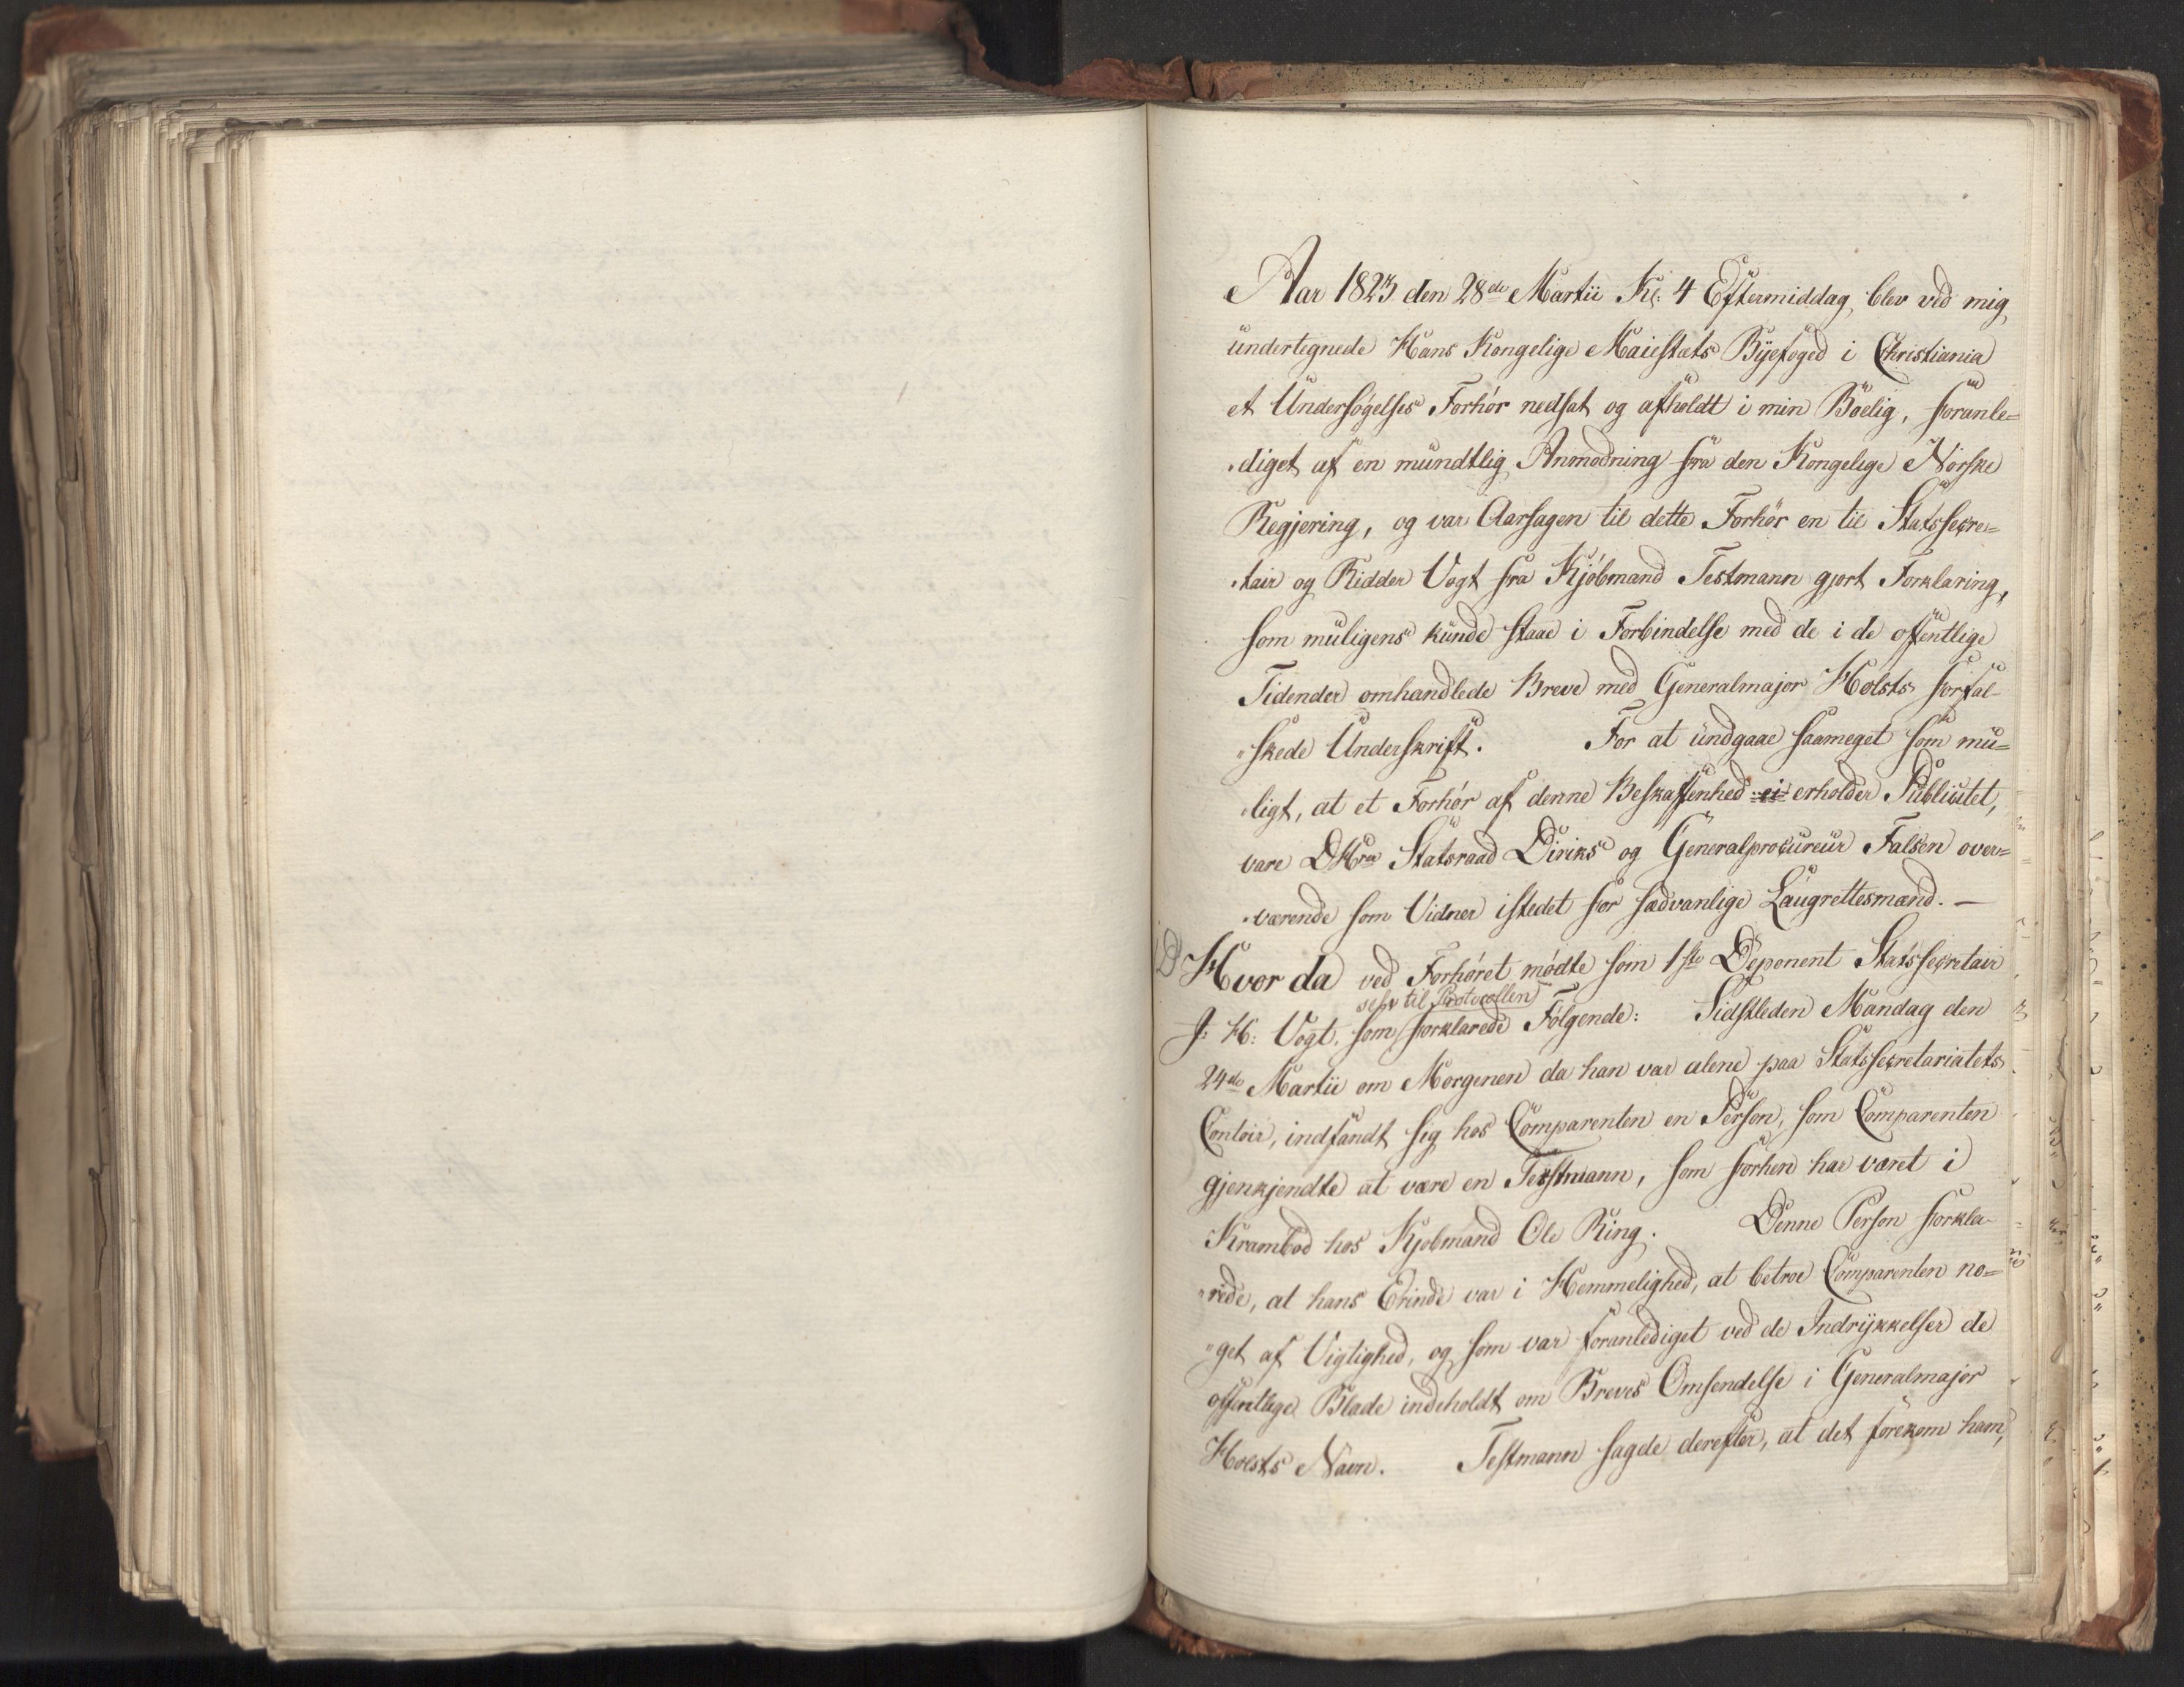 Aar 1823 den 28de Martii Kl: 4 Eftermiddag, blev ved mig
undertegnede Hans Kongelige Maiestæts Byefoged i Christiania
et Undersøgelses Forhør nedsat og afholdt i min Boelig, foranle=
diget af en mundtlig Anmodning fra den Kongelige Norske
Regjering, og var Aarsagen til dette Forhør en til Statssecre=
tair og Ridder Vogt fra Kjøbmand Testmann gjort Forklaring,
som muligens kunde staae i Forbindelse med de i de offentlige
Tidender omhandlede Breve med Generalmajor Holsts forfal-
skede Underskrift. For at undgaae saameget som mu=
ligt, at et Forhør af denne Beskaffenhed ei erholder Publicitet,
vare DHrr Statsraad Diriks og Generalprocureur Falsen over=
værende som Vidner istedet for sædvanlige Laugrettesmænd. —
Hvor da ved Forhøret mødte som 1ste Deponent Statssecretair
selv til Protocollen
J: H: Vogt, som forklarede Følgende: Sidstleden Mandag den
24de Martii om Morgenen da han var alene paa Statssecretariatets
Contoir, indfandt sig hos Comparenten en Person, som Comparenten
gjenkjendte at være en Testmann, som forhen har været i
Krambod hos Kjøbmand Ole Ring. Denne Person forkla-
rede, at hans Erinde var i Hemmelighed, at betroe Comparenten no=
get af Vigtighed, og som var foranlediget ved de Indrykkelser de
offentlige Blade indeholdt om Breves Omsendelse i Generalmajor
Holsts Navn. Testmann sagde derefter, at det forekom ham,